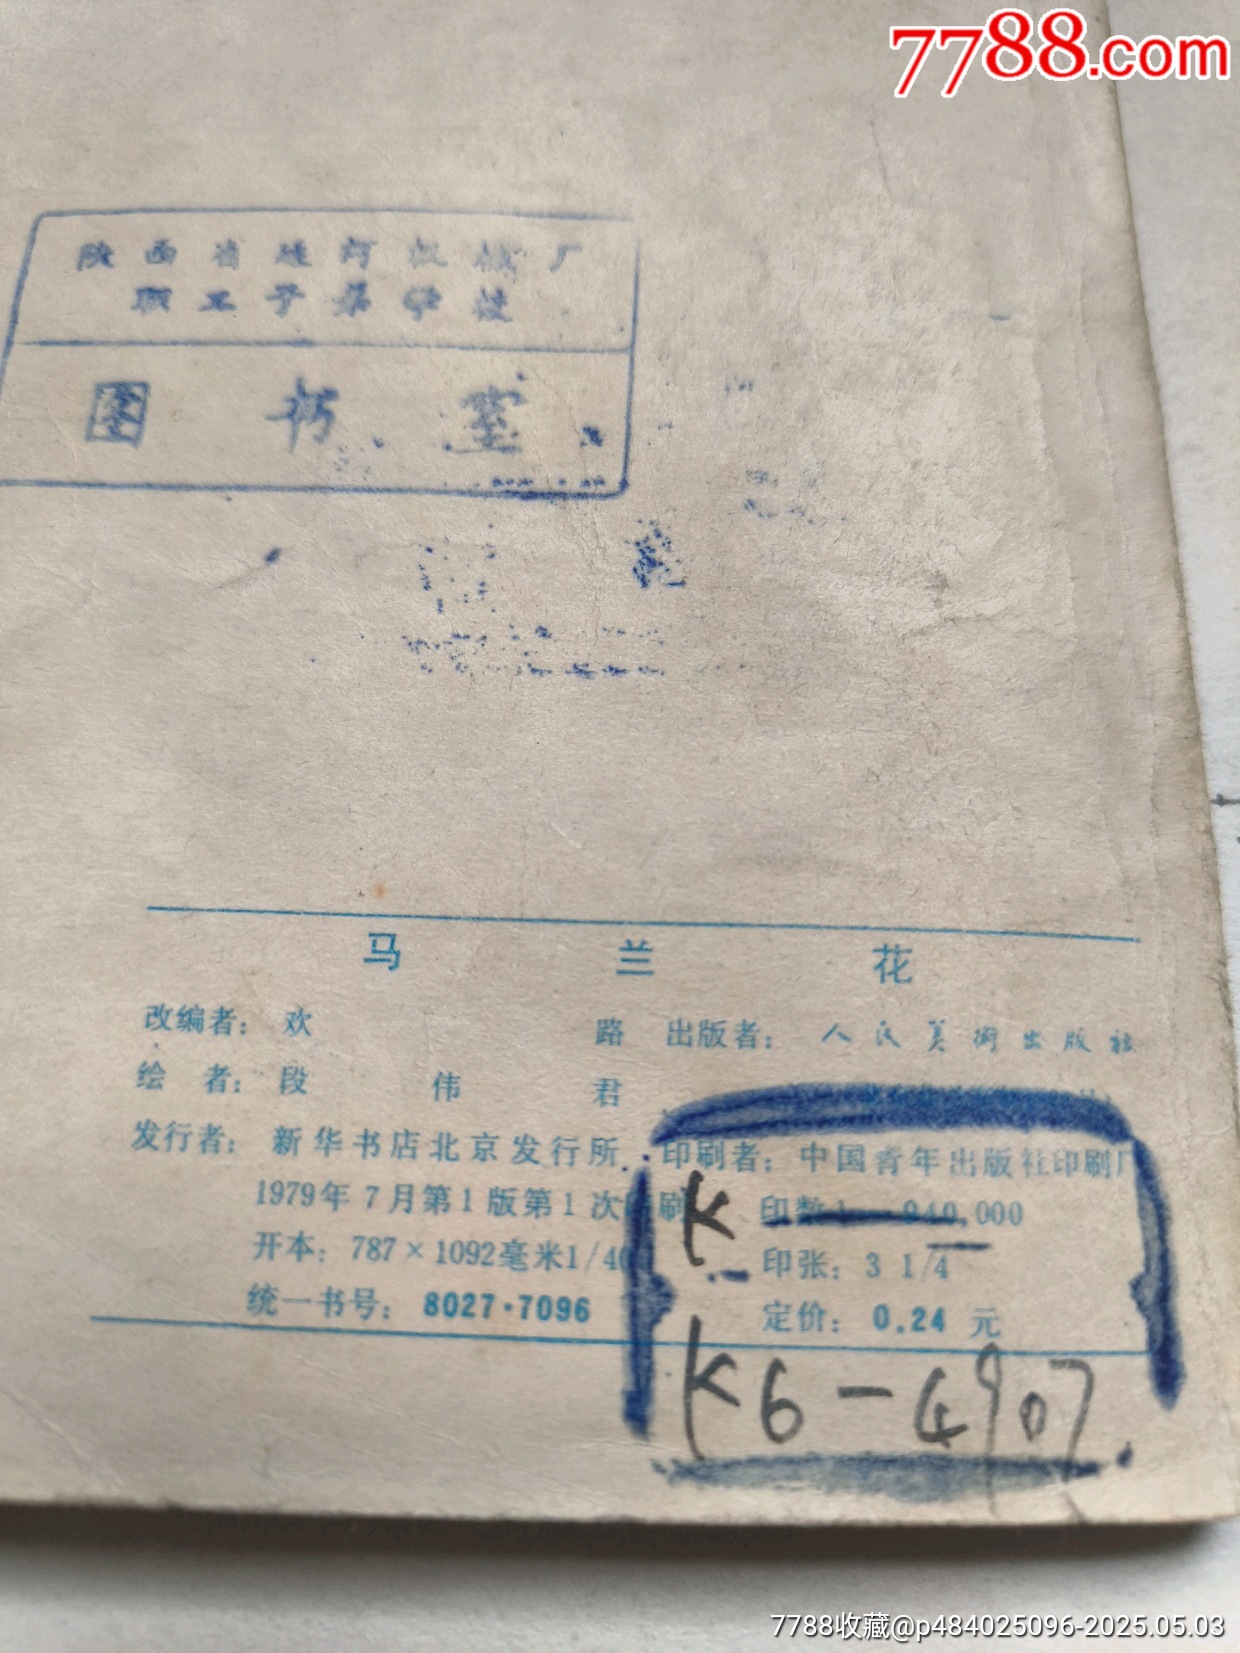 7788.com
陕西省延河机械厂
职工子弟学校
图书室
马兰花
改编者：欢路 出版者：人民美术出版社
绘者：段伟君
发行者：新华书店北京发行所 印刷者：中国青年出版社印刷厂
1979年7月第1版第1次印刷 印数1—940,000
开本：787×1092毫米1/40 印张：3 1/4
统一书号：8027·7096 定价：0.24元
K
K6-4907
7788收藏@p484025096-2025.05.03